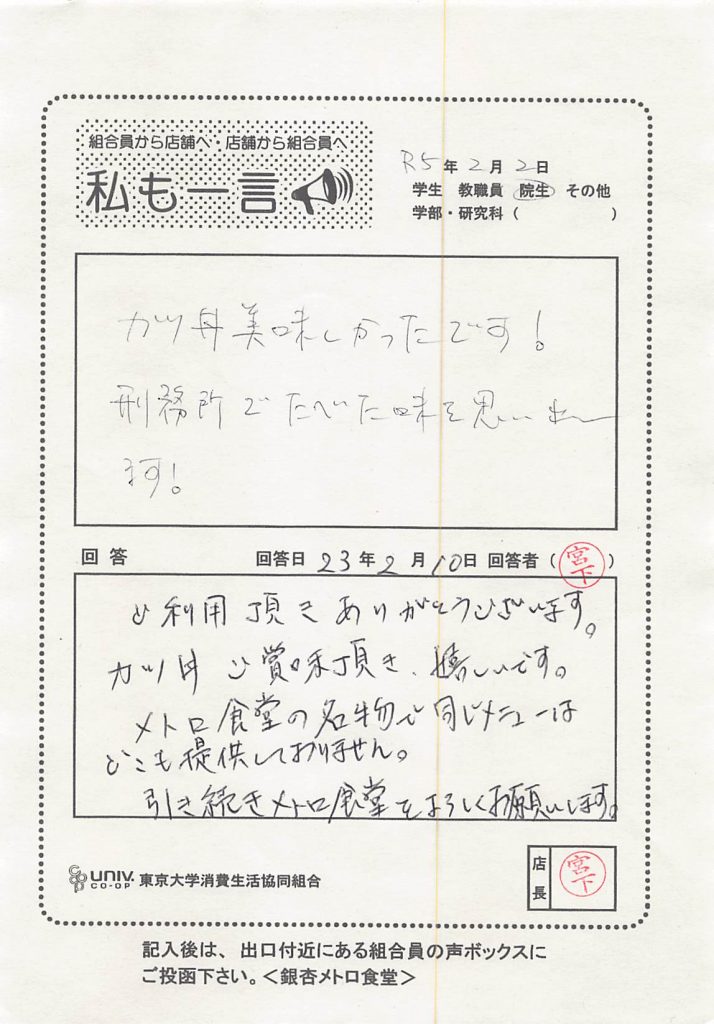 組合員から店舗へ・店舗から組合員へ
私も一言
R5年2月2日
学生 教職員 院生 その他
学部・研究科( )
カツ丼美味しかったです!
刑務所でたべた味を思い出し
ます!
回答 回答日 23年2月10日 回答者(宮下)
ご利用頂きありがとうございます。
カツ丼ご賞味頂き、嬉しいです。
メトロ食堂の名物で同じメニューは
どこも提供しておりません。
引き続きメトロ食堂をよろしくお願いします。
UNIV. CO-OP 東京大学消費生活協同組合
店長 宮下
記入後は、出口付近にある組合員の声ボックスに
ご投函下さい。<銀杏メトロ食堂>